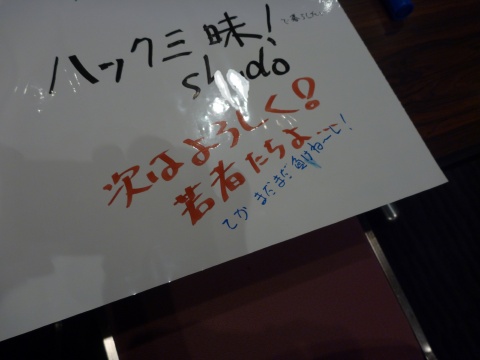 ハック三昧!
shudo
次はよろしく!
若者たちよ…
てか まだまだ負けねーし!